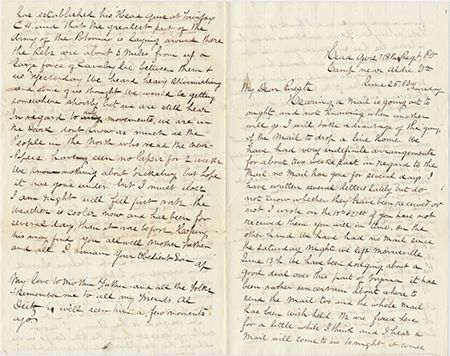 Head Qurs 118th Regt PV
Camp near Aldie Va
June 25th Thursday
My Dear
Hearing a mail is going out to
night, and not knowing when another
will go. I will take advantage of the going
of the mail to drop a line home. We
have had very indefinite arrangements
for about two weeks past in regard to the
Mail no Mail has gone for several days. I
have written several letters lately but do
not know whether they have been received or
not I wrote on the 18th & 21st if you have not
received them you will in time. On the
other hand we have had no mail since
the Saturday night we left Morrisville
June 13th We have been dodging about a
good deal over this part of Virginia it has
been rather uncertain about where to
send the mail too and the whole Mail
has been with held. We are fixed here
for a little while I think and I hear a
Mail will come to us to night it comes
has established his Head Qurs at Fairfax
C H and that the greatest part of the
Army of the Potomac is laying around there
the Rebs are about 6 miles from us a
large force of Cavalry lie between them &
us. Yesterday we heard heavy skirmishing
and some of us thought we would be getting
somewhere shortly but we are still here
in regard to any movements, we are in
the dark dont know as much as the
People in the North who read the News-
Papers having seen no Papers for 2 weeks
We know nothing about Vicksburg but hope
it has gone under. but I must close
I am might well feel first rate the
Weather is cooler now and has been for
several days than it was before Hoping
this may find you all well Mother Father
and all I remain Your Obedient Son
My love to Mother Father and all the folks
Remember me to all my friends Al
is well seen him a few moments
ago